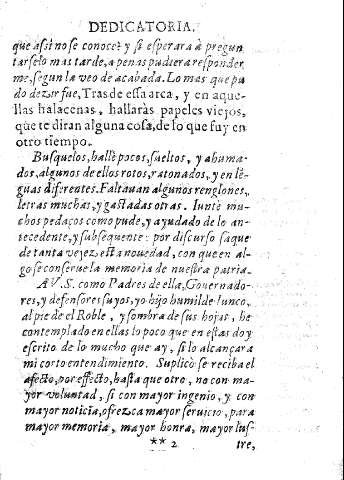 DEDICATORIA.
que assi no se conoce? y si esperara à pregun
tarselo mas tarde, a penas pudiera responder
me, segun la veo de acabada. Lo mas que pu
do dezir fue, Tras de essa arca, y en aque-
llas halacenas, hallaràs papeles viejos,
que te diran alguna cosa, de lo que fuy en
otro tiempo.
Busquelos, hallè pocos, sueltos, y ahuma-
dos, algunos de ellos rotos, ratonados, y en lē-
guas diferentes. Faltauan algunos renglones,
letras muchas, y gastadas otras. Iuntè mu-
chos pedaços como pude, y ayudado de lo an-
tecedente, y subsequente: por discurso saque
de tanta vejez esta nouedad, con que en al-
go se conserue la memoria de nuestra patria.
A V.S. como Padres de ella, Gouernado-
res, y defensores suyos, yo hijo humilde lunco,
al pie de el Roble, y sombra de sus hojas, he
contemplado en ellas lo poco que en esta doy
escrito de lo mucho que ay, si lo alcançara
mi corto entendimiento. Suplicò se reciba el
afecto, por effecto, hasta que otro, no con ma-
yor voluntad, si con mayor ingenio, y con
mayor noticia, ofrezca mayor seruicio, para
mayor memoria, mayor honra, mayor lus-
** 2 tre,